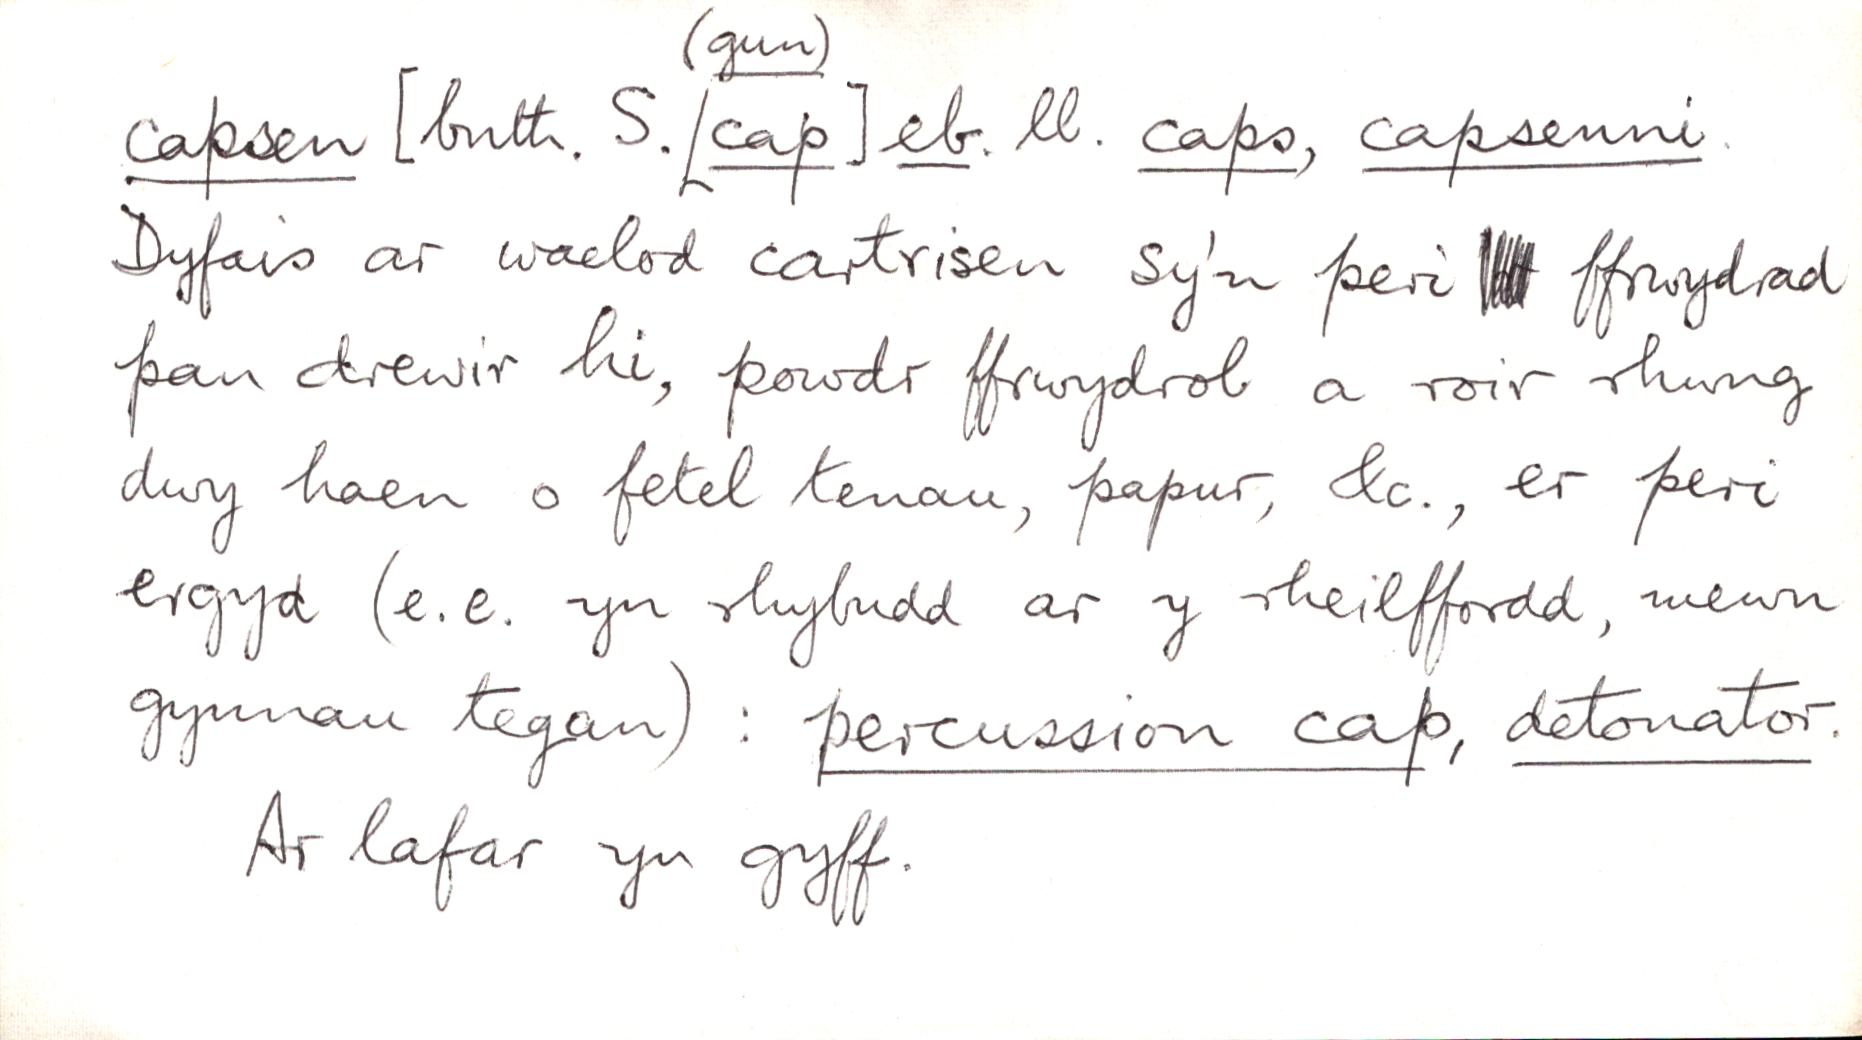 (gun)
capsen [bnth. S. cap] eb. ll. caps, capsenni.
Dyfais ar waelod cartrisen sy'n peri ffrwydrad
pan drewir hi, powdr ffrwydrol a roir rhwng
dwy haen o fetel tenau, papur, &c., er peri
ergyd (e.e. yn rhybudd ar y rheilffordd, mewn
gynnau tegan) : percussion cap, detonator.
Ar lafar yn gyff.